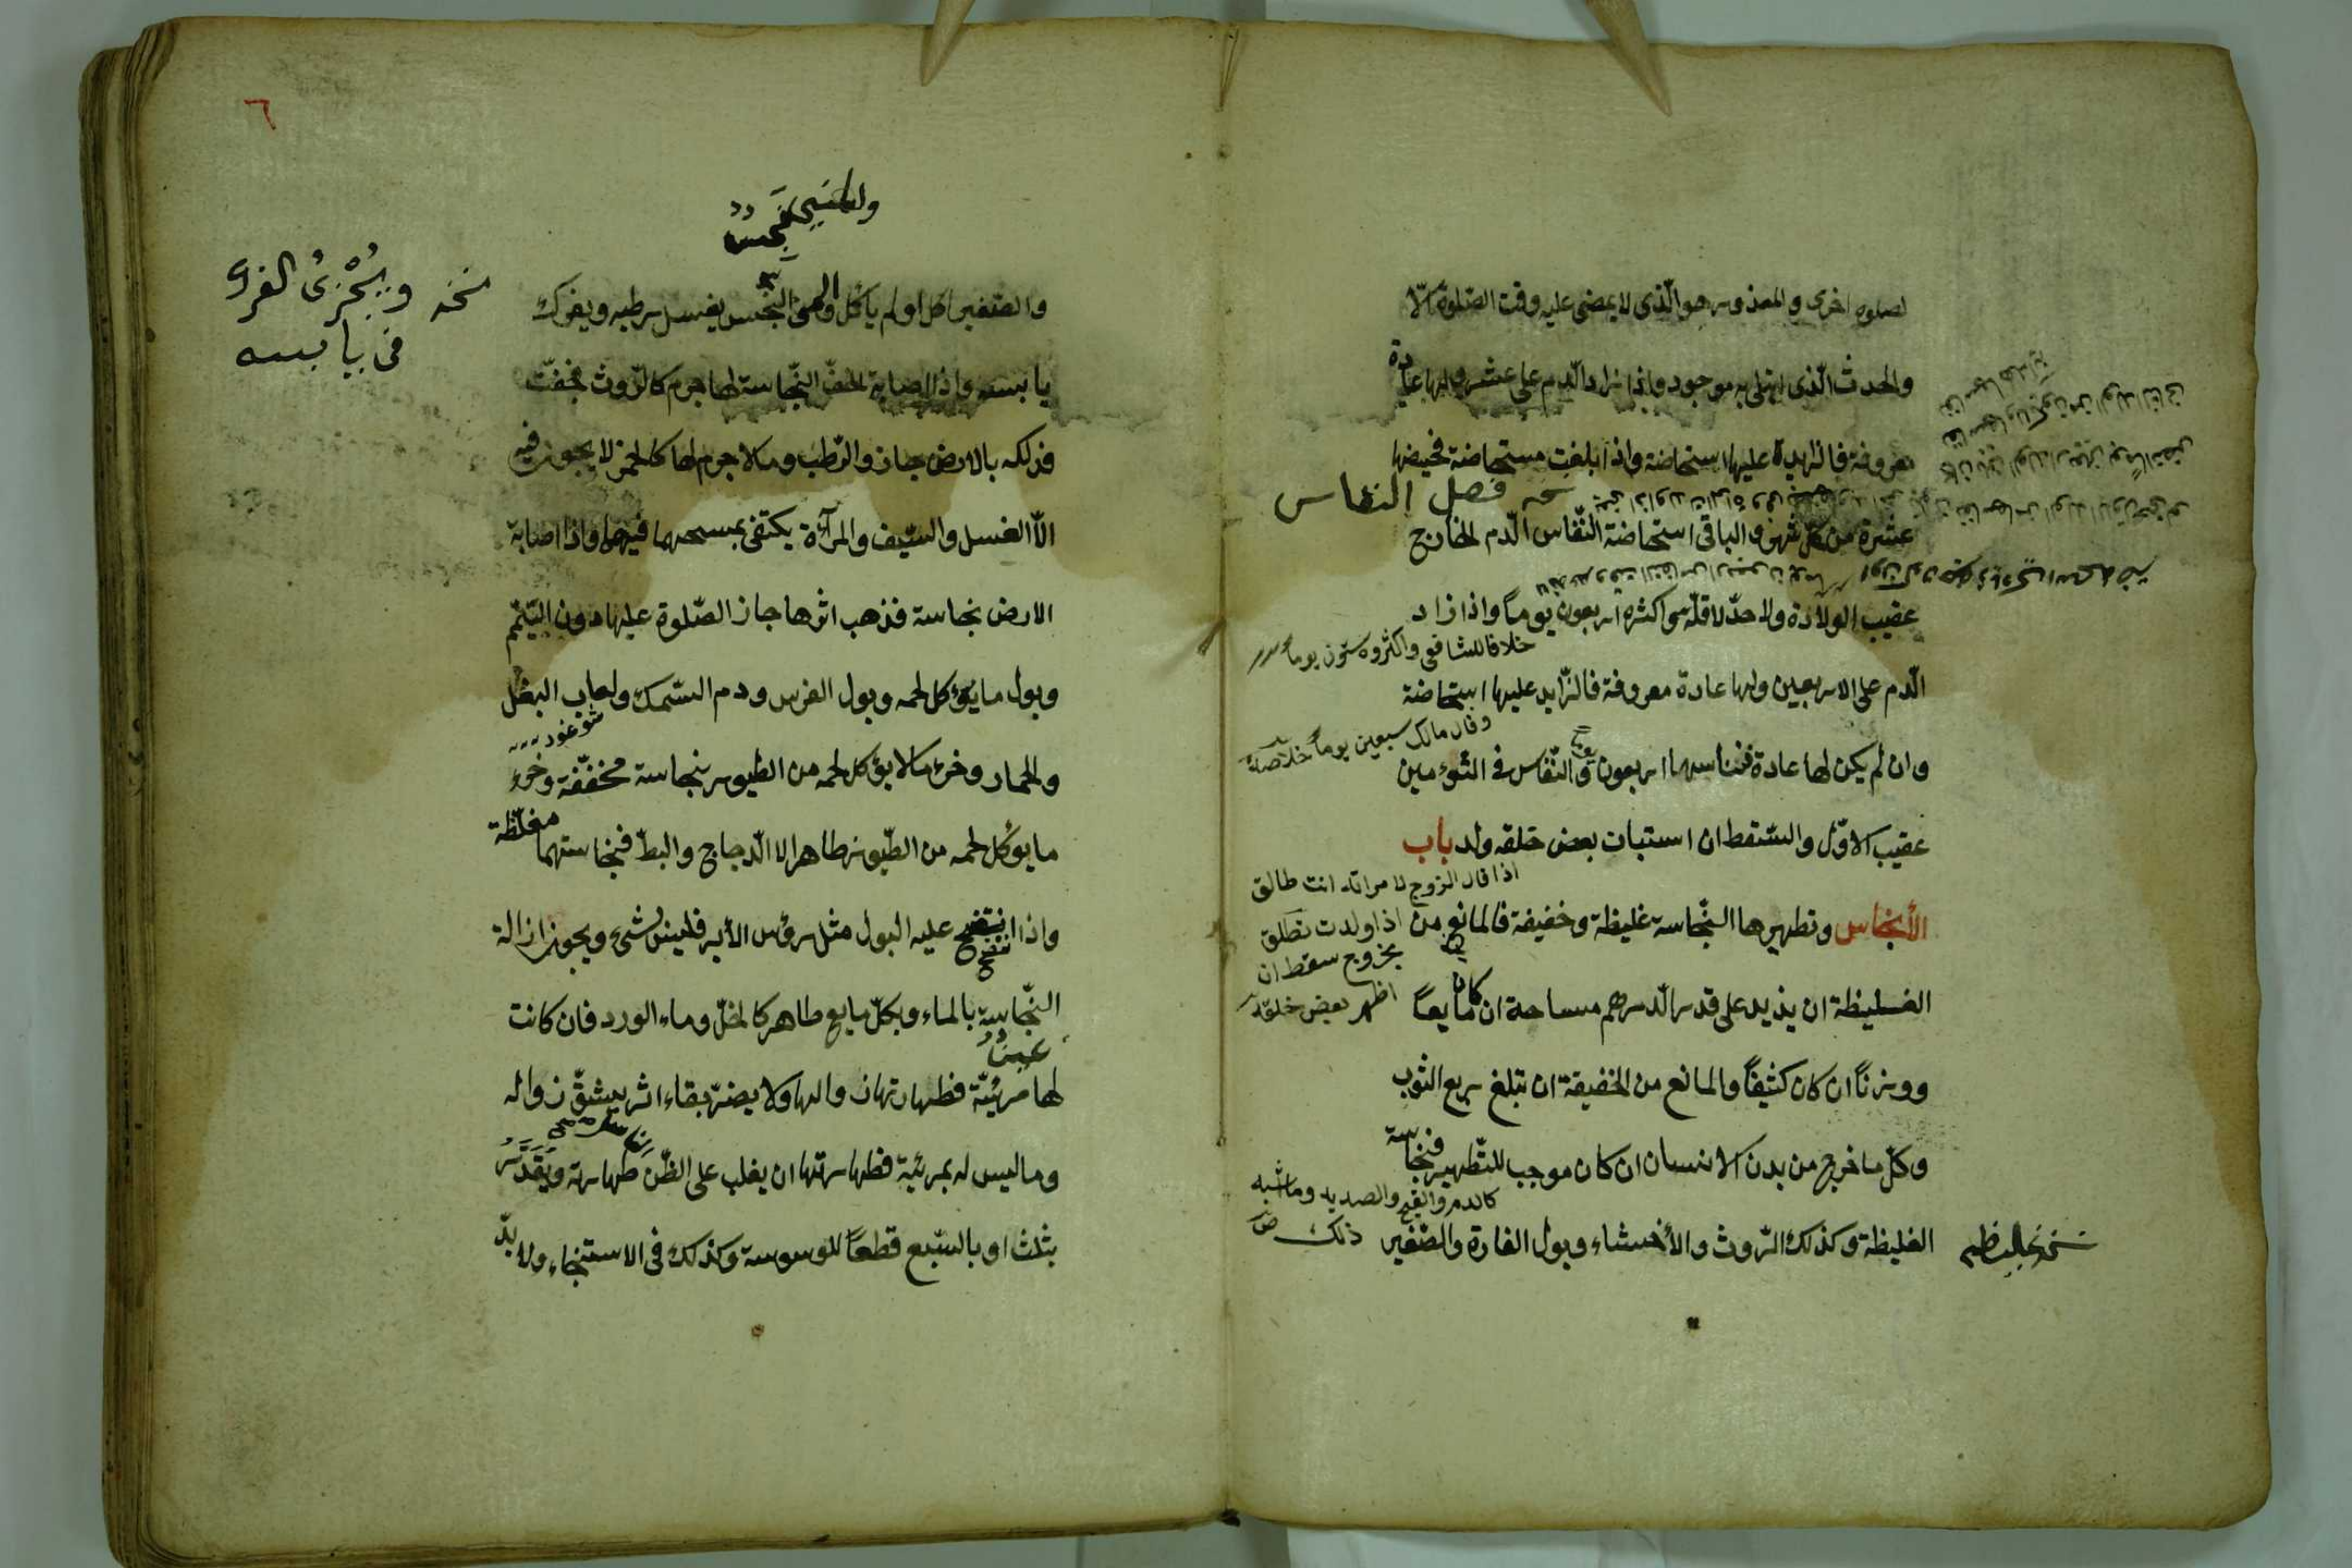 لصلوة اخرى والمعذور هو الّذى لا يمضى عليه وقت الصّلوة الّا
والحدث الّذى ابتلى به موجود واذا زاد الّدم على عشرة ولها عادة
معروفة فالزايدة عليها استحاضة واذا بلغت مستحاضة فحيضها
نسخه فصل النفاس
عشرة من كلّ شهر والباقى استحاضة النّفاس الّدم الخارج
عقيب الولادة ولا حدّ لاقلّه واكثره اربعون يوماً واذا زاد
خلافا للشافعى واكثره ستون يوما
الّدم على الاربعين ولها عادة معروفة فالزّايد عليها استحاضة
وقال مالك سبعين يوماً خلاصه
وان لم يكن لها عادة فنفاسها اربعون يوما والنّفاس فى التّوءمين
عقيب الاوّل والسّقط ان استبات بعض خلقه ولد باب
اذا قال الزوج لامراته انت طالق
الأنجاس وتطهيرها النّجاسة غليظة وخفيفة فالمانع من
اذا ولدت تطلق
بخروج سقط ان
اظهر بعض خلقه
الغليظة ان يذيد على قدر الّدرهم مساحة ان كان مايعاً
ووزناً ان كان كثيفاً والمانع من الخفيفة ان تبلغ ربع الثوب
وكلّ ما خرج من بدن الانسان ان كان موجب للتّطهير فنجاسة
كالدم والقيح والصديد وما اشبه
ذلك
الغليظة وكذلك الرّوث والأخشاء وبول الفارة والصّغير
نسخه غليظه
٦
والمنى نجس
والصّغير اكل او لم ياكل والمنى النجس يغسل رطبه ويفرك
نسخه ويُجْزِئُ الفرك
فى يابسه
يابسه واذا اصابة الخفّ النّجاسة لها جرم كالرّوث فجفّت
فدلكه بالارض جاز والرّطب وما لا جرم لها كالخمر لا يجوز فيه
الّا الغسل والسّيف والمرآة يكتفى بمسحهما فيهما واذا اصابة
الارض نجاسة فذهب اثرها جاز الصّلوة عليها دون التّيمّم
وبول ما يؤكل لحمه وبول الفرس ودم السّمك ولعاب البغل
والحمار وخرء ما لا يؤكل لحمه من الطيور نجاسة مخفّفة وخرء
ما يوكل لحمه من الطّيور طاهر الا الّدجاج والبطّ فنجاستهما مغلّظة
واذا انتضح عليه البول مثل رؤس الأبر فليس بشئ ويجوز ازالة
النّجاسة بالماء وبكلّ مايع طاهر كالخلّ وماء الورد فان كانت
عين
لها مرئيّة فطهارتها زوالها ولا يضرّ بقاء اثر يشقّ زواله
وما ليس له بمرئية فطهارتها ان يغلب على الظّن طهارته ويقدّر
بثلث او بالسّبع قطعاً للوسوسة وكذلك فى الاستنجاء ولا بدّ